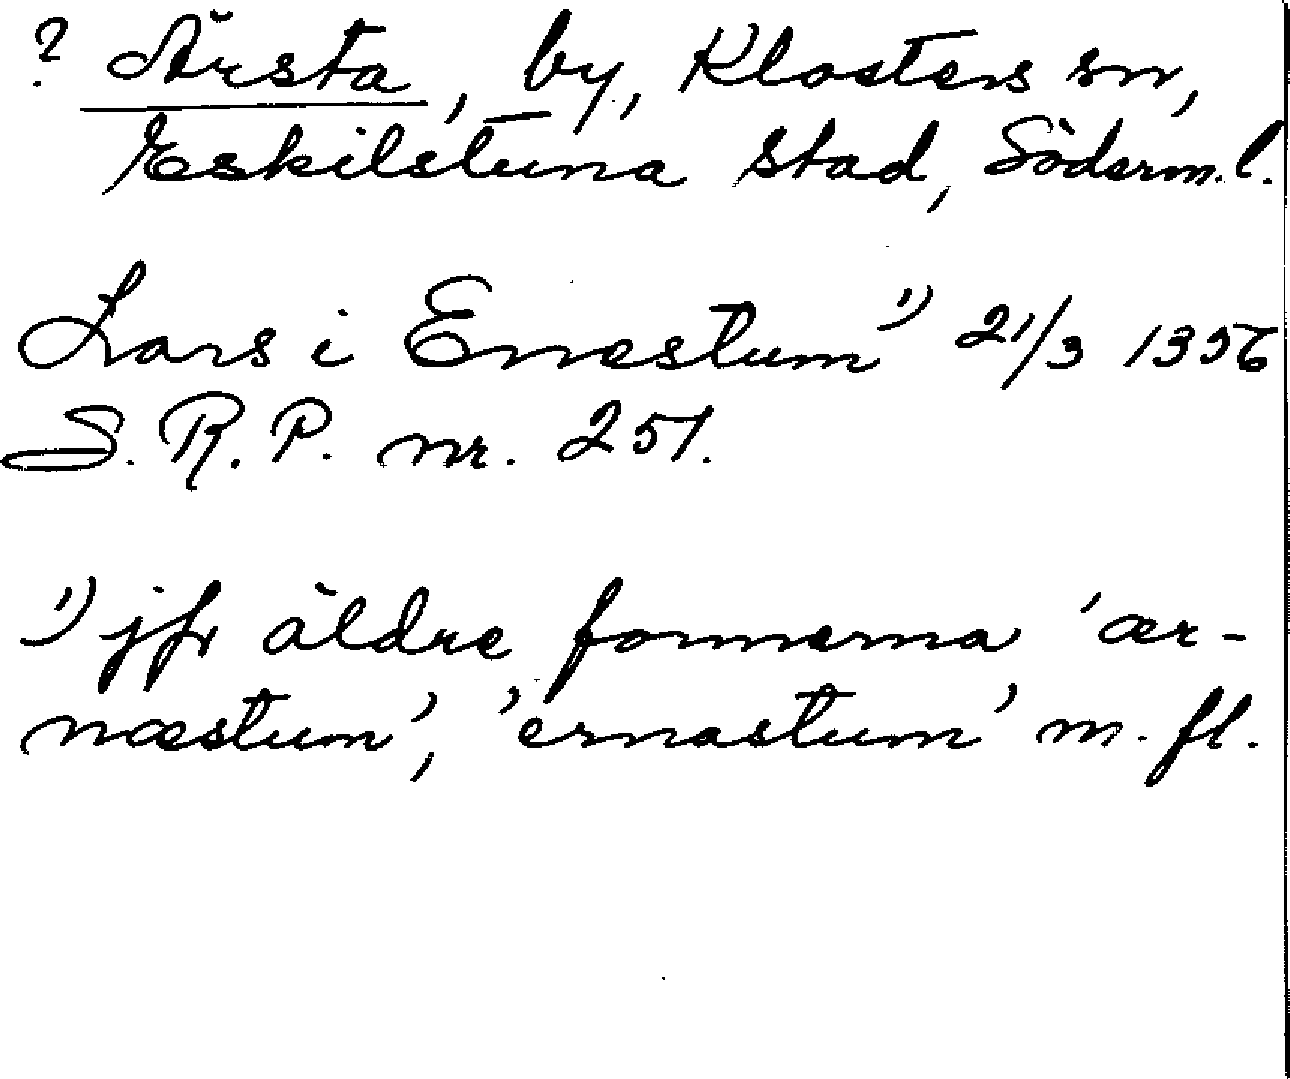 ? Ärsta, by, Klosters sn,
Eskilstuna stad, Söderm.l.
Lars i Enæstum ¹⁾ 21/3 1356
S. R. P. nr. 251.
¹⁾ jfr äldre formerna 'ær-
næstum', 'ernastum' m. fl.